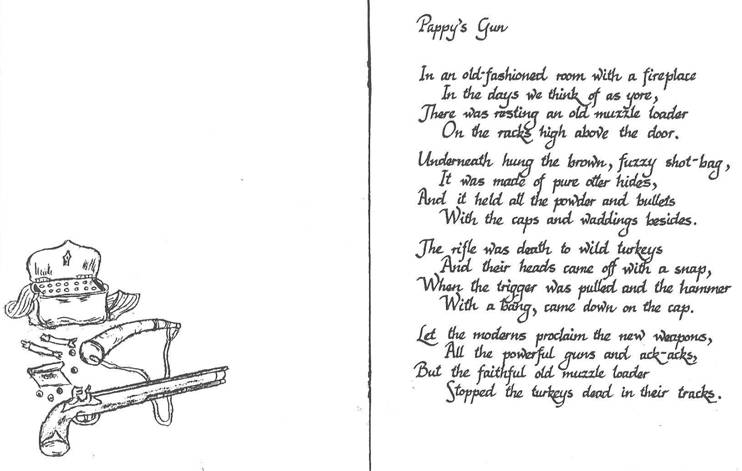 Pappy's Gun
In an old-fashioned room with a fireplace
In the days we think of as yore,
There was resting an old muzzle loader
On the racks high above the door.
Underneath hung the brown, fuzzy shot-bag,
It was made of pure otter hides,
And it held all the powder and bullets
With the caps and waddings besides.
The rifle was death to wild turkeys
And their heads came off with a snap,
When the trigger was pulled and the hammer
With a bang, came down on the cap.
Let the moderns proclaim the new weapons,
All the powerful guns and ack-acks,
But the faithful old muzzle loader
Stopped the turkeys dead in their tracks.